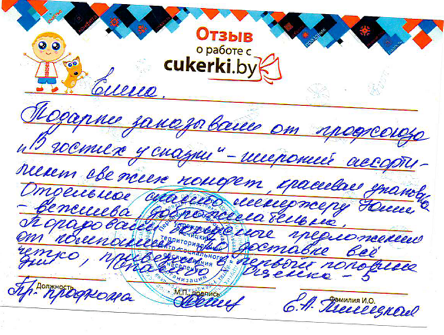 Отзыв
о работе с
cukerki.by
Елена.
Подарки заказывали от профсоюза
"В гостях у сказки" - широкий ассорти-
мент свежих конфет, красивая упаковка
Отдельное спасибо менеджеру
- вежлива, доброжелательна.
Порадовали бонусное предложение
от компании. По доставке всё
четко, привезли в первой половине
дня, спасибо. Оценка - 5
Должность
М.П. подпись
Фамилия И.О.
Пр. профкома
Е.А.